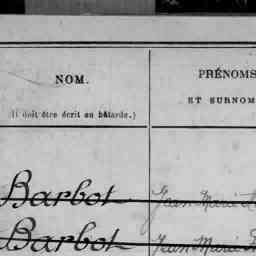 NOM. PRÉNOMS
ET SURNOM
(Il doit être écrit en bâtarde.)
Barbot Jean Marie
Barbot Jean Marie